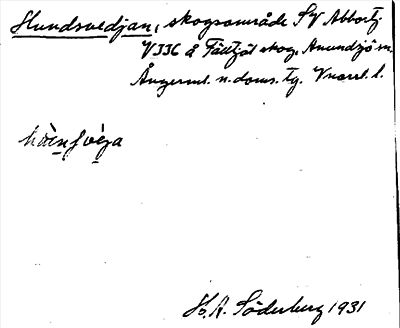 Hundsvedjan, skogsområde SV Abbortj.
V 336 å Fälltjäl skog, Anundsjö sn.
Ångerml. n. doms. tg. Vnorrl. l.
H. A. Söderberg 1931